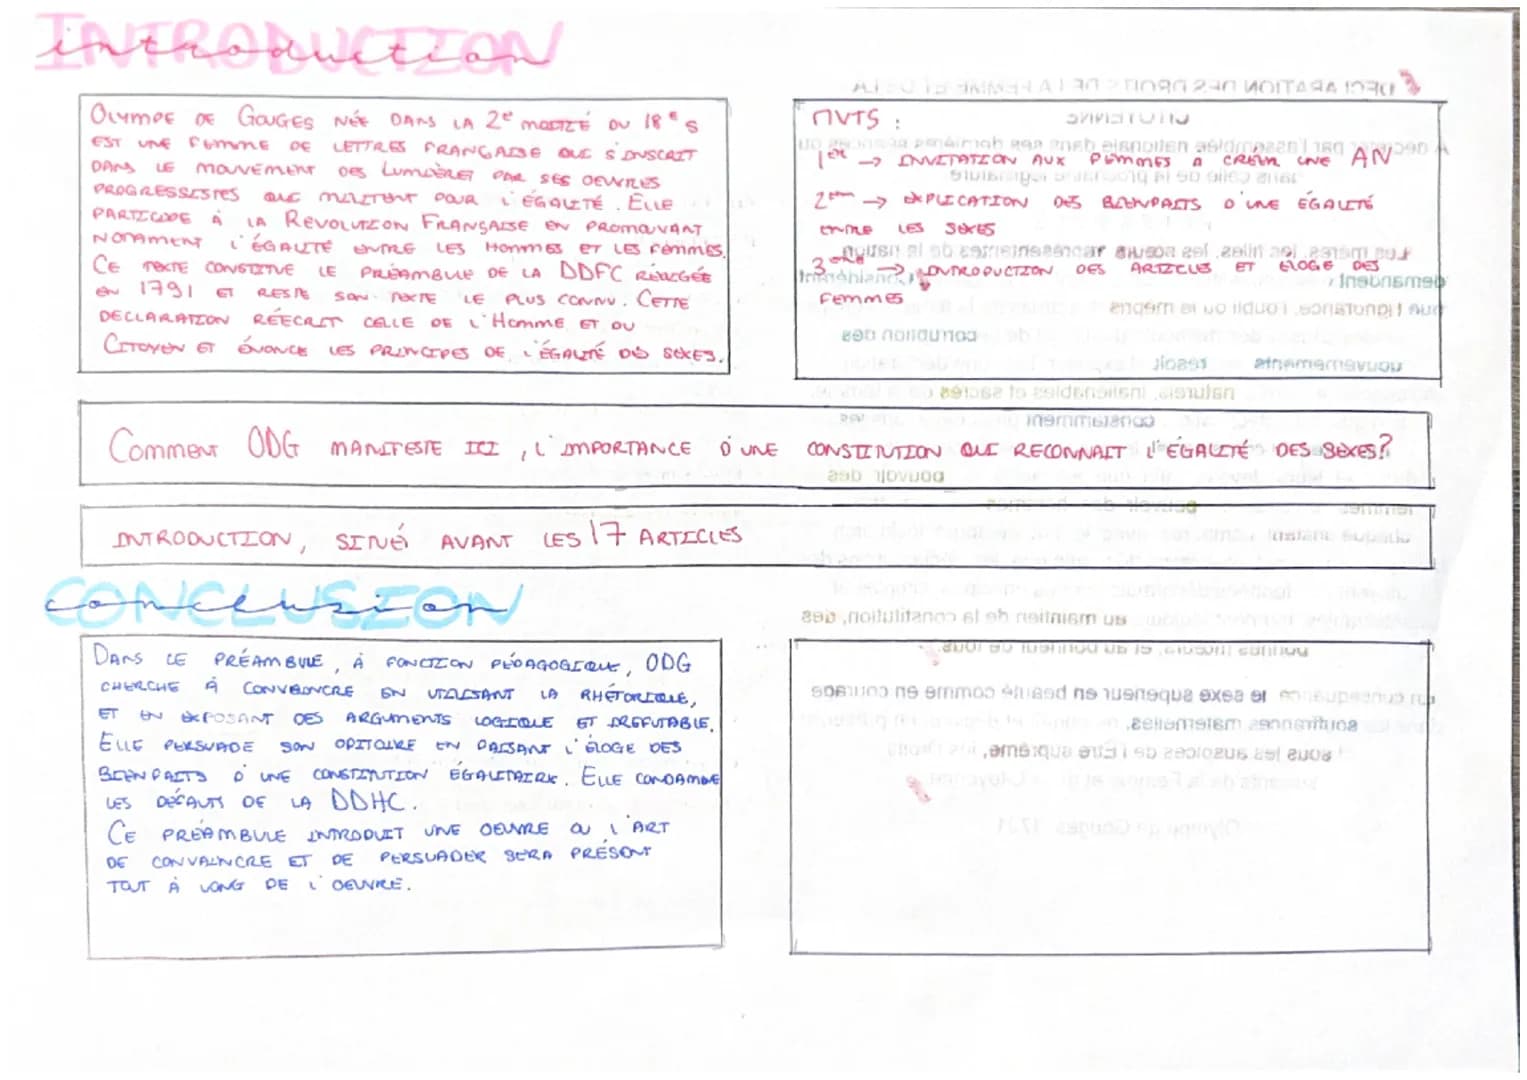 INTRODUCTION
introduction
OLYMPE DE GOUGES NÉE DANS LA 2e MOITIÉ DU 18e S
EST UNE FEMME DE LETTRES FRANÇAISE QUI S'INSCRIT
DANS LE MOUVEMENT DES LUMIÈRES PAR SES OEUVRES
PROGRESSISTES QUI MILITENT POUR L'ÉGALITÉ. ELLE
PARTICIPE À LA REVOLUTION FRANÇAISE EN PROMOUVANT
NOTAMMENT L'ÉGALITÉ ENTRE LES HOMMES ET LES FEMMES.
CE TEXTE CONSTITUE LE PRÉAMBULE DE LA DDFC RÉDIGÉE
EN 1791 ET RESTE SON TEXTE LE PLUS CONNU. CETTE
DECLARATION RÉECRIT CELLE DE L'HOMME ET DU
CITOYEN ET ÉNONCE LES PRINCIPES DE L'ÉGALITÉ DES SEXES.
MVTS :
1er → INVITATION AUX FEMMES A CRÉER UNE AN
2em → EXPLICATION DES BIENFAITS D'UNE ÉGALITÉ
ENTRE LES SEXES
3eme → INTRODUCTION DES ARTICLES ET ÉLOGE DES
FEMMES
COMMENT ODG MANIFESTE ICI, L'IMPORTANCE D'UNE CONSTITUTION QUI RECONNAIT L'ÉGALITÉ DES SEXES?
INTRODUCTION, SITUÉ AVANT LES 17 ARTICLES
CONCLUSION
conclusion
DANS LE PRÉAMBULE, À FONCTION PÉDAGOGIQUE, ODG
CHERCHE À CONVAINCRE EN UTILISANT LA RHÉTORIQUE,
ET EN EXPOSANT DES ARGUMENTS LOGIQUE ET IRREFUTABLE.
ELLE PERSUADE SON ODITOIRE EN FAISANT L'ÉLOGE DES
BIENFAITS D'UNE CONSTITUTION ÉGALITAIRE. ELLE CONDAMNE
LES DÉFAUTS DE LA DDHC.
CE PRÉAMBULE INTRODUIT UNE OEUVRE OU L'ART
DE CONVAINCRE ET DE PERSUADER SERA PRÉSENT
TOUT À LONG DE L'OEUVRE.